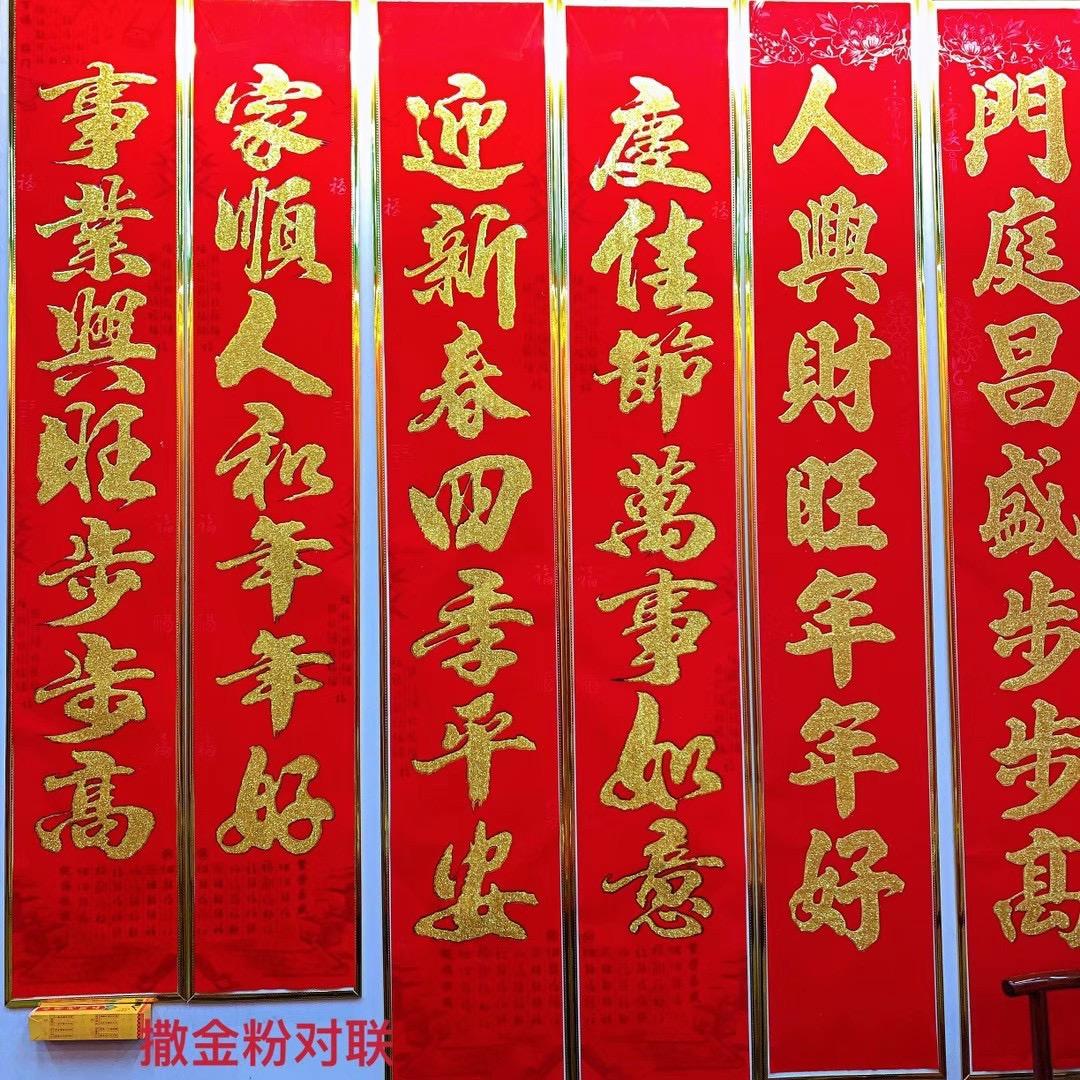 門庭昌盛步步高
人興財旺年年好
慶佳節萬事如意
迎新春四季平安
家順人和年年好
事業興旺步步高
撒金粉对联